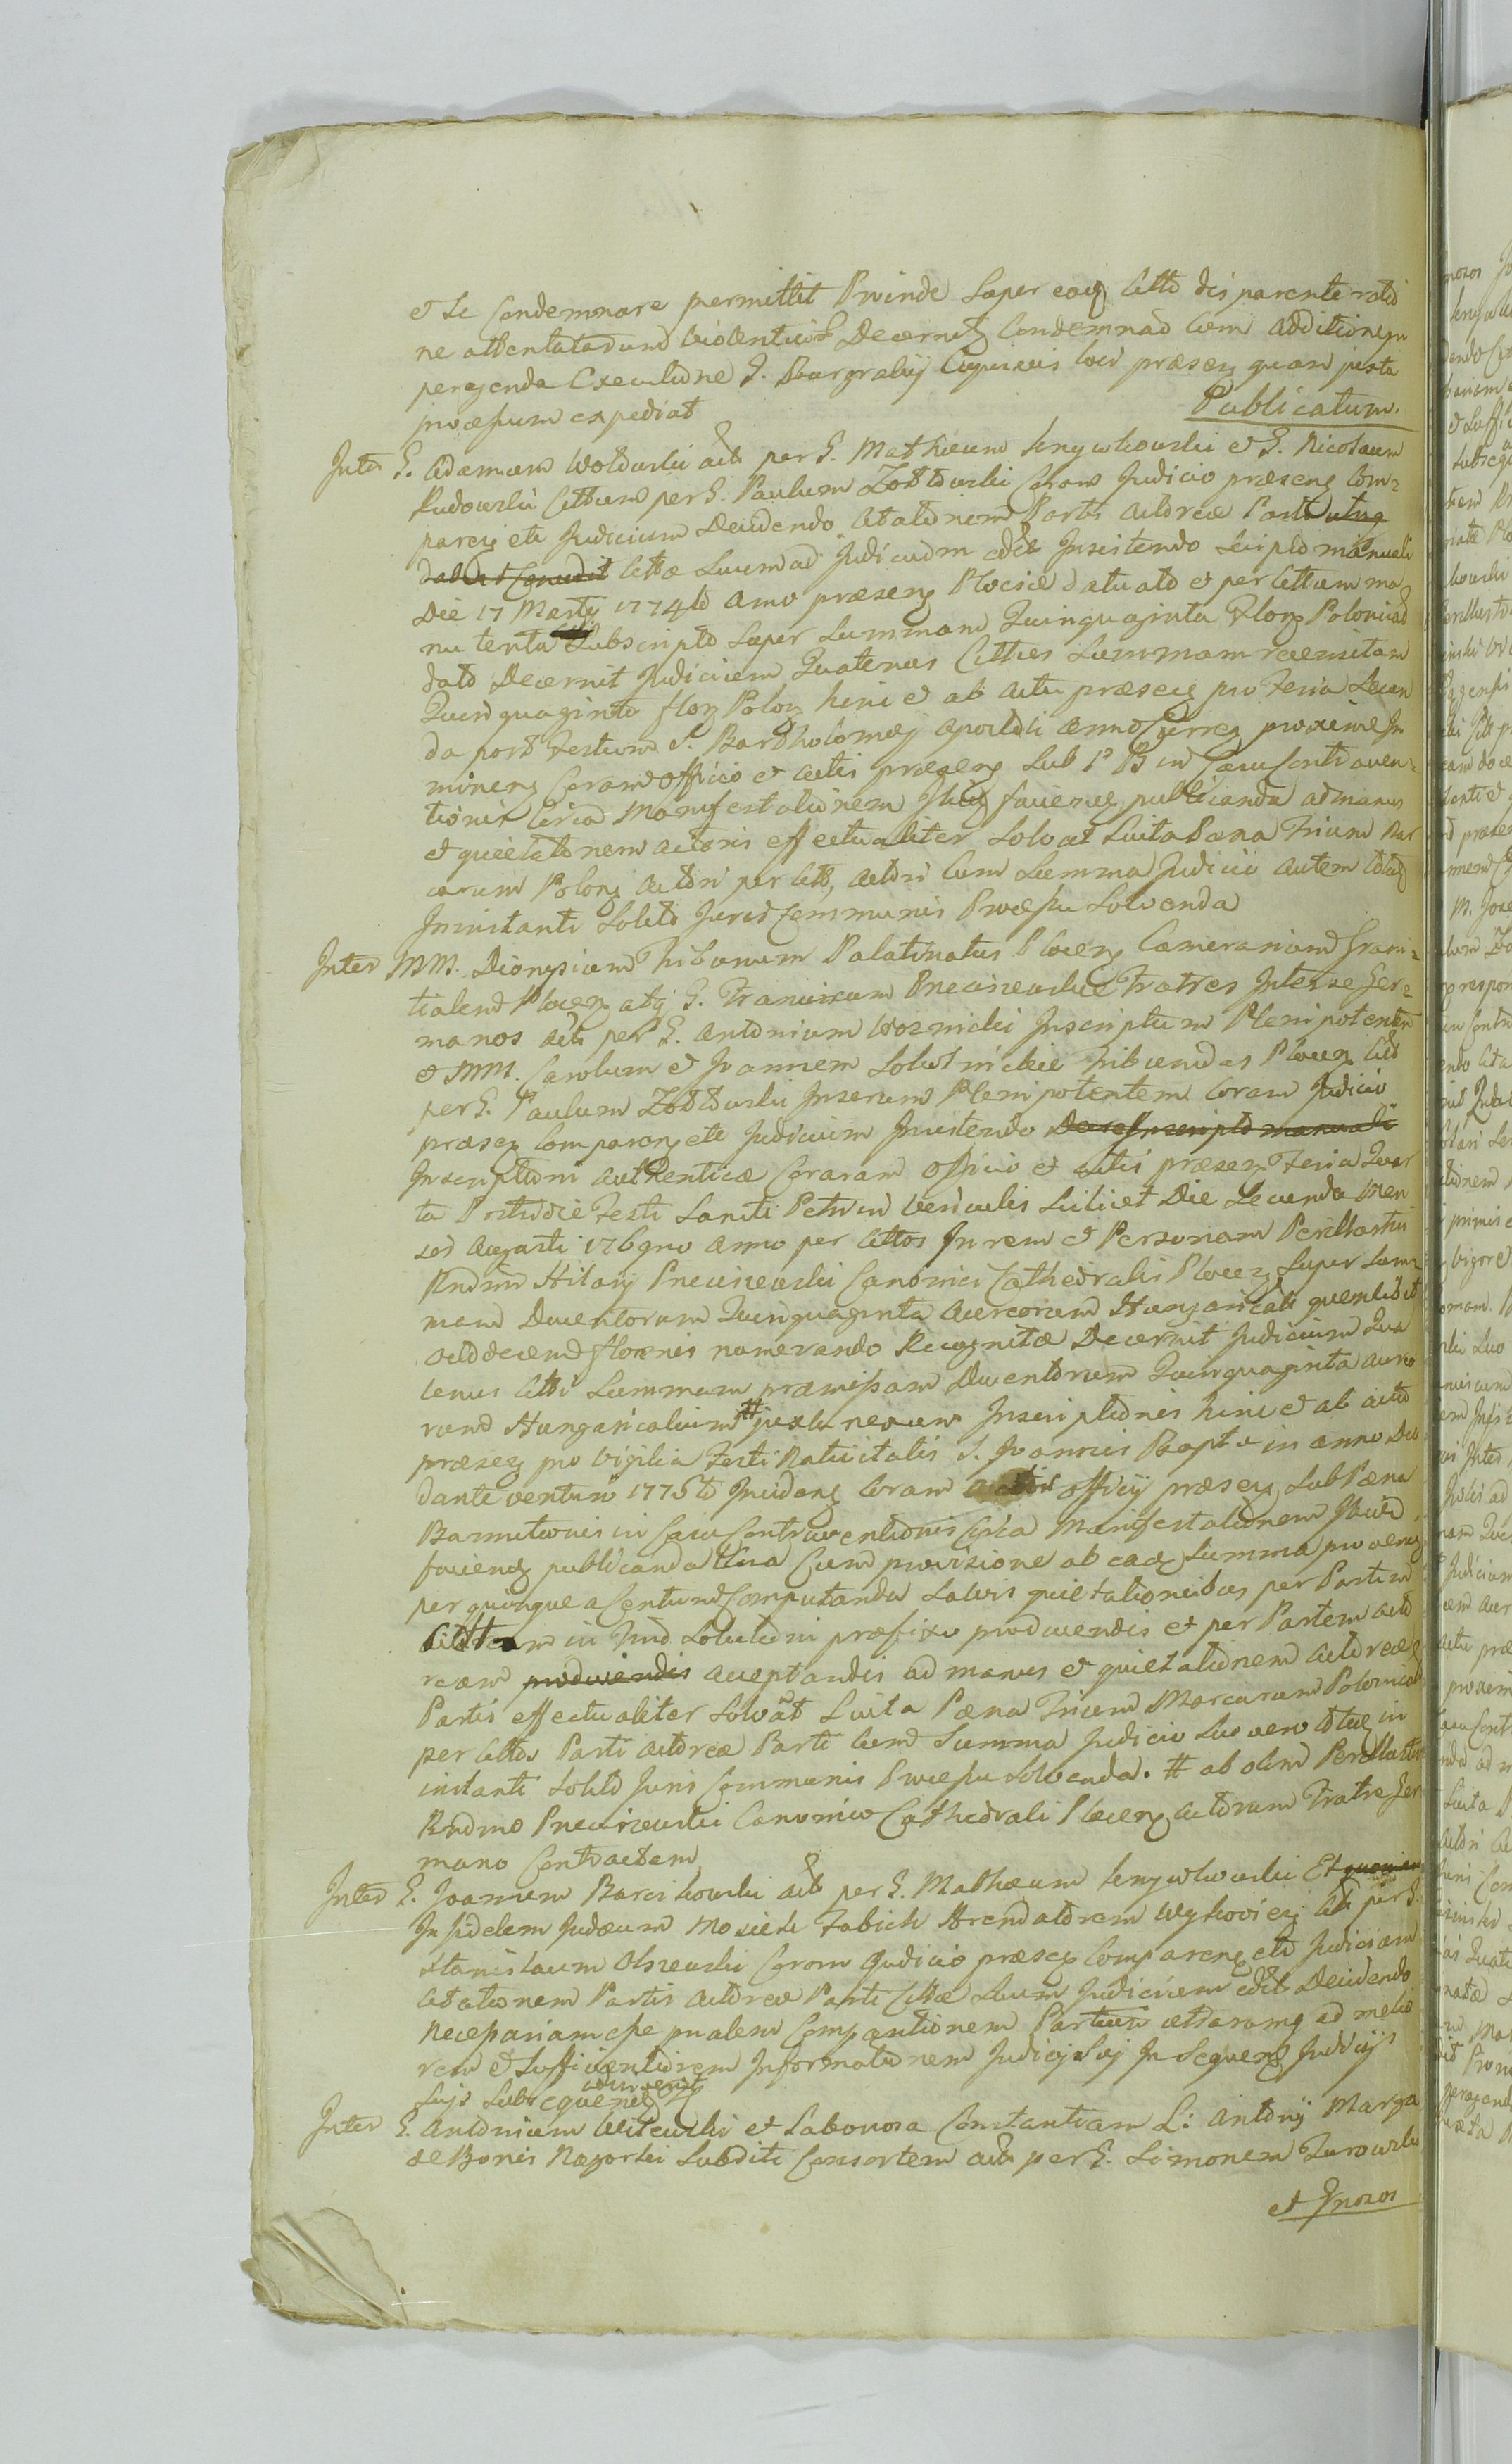 et se Condemnare permittit Proinde super eoq Citto dis parente ratio
ne attentatarum violentiar Decernitz Condemnat Cum additionem
peragenda Executione J. Burgrabij Cujusvis loci præsez quam juxta
processum expediat
Publicatum.
Inter G. Adamum Woldowski act per G. Mathæum Smysłowski et G. Nicolaum
Rudowski Cittum per G. Paulum Zołtowski Coram Judicio præsenz Com=
parenz etc Judicium Decidendo Citationem Partis Actoreæ Parti
Cittæ Suum ad Judicium edit Insistendo Scripto manuali
Die 17 Martij 1774to Anno præsenz Plociæ datuato et per Cittum ma
nu tenta Subscripto super Summam Quinquaginta Florz Polonicad
dato Decernit Judicium Quatenus Cittus Summam recensitam
Quinquaginta florz Polonz hinc et ab actu præsenz pro Feria Secun
da post Festum S. Bartholomæj Apostoli Anno Currenz proxime Im
minenz Coram officio et actis præsenz Sub P B in Casu Contraven=
tionis Circa Manifestationem Illiuq faciendz publicanda ad manus
et quietationem actoris effectualiter Solvat Luita Pæna Trium Mar
carum Polonz Actori per Citt, actori cum Summa Judicio autem
Ininstanti Solito Juris Communis Processu Solvenda
Inter MM. Dionysium Tribunum Palatinatus Plocenz Camerarium Grani=
tialem Plocenz atq G. Franciscum Pnieciszewskie Fratres Interse Ger=
manos act per G. Antonium Woznicki Inscriptum Plenipotentem
et MM. Carolum et Joannem Solotnickie Tribunidas Plocenz Citt
per G. Paulum Zołtowski Inserum Plenipotentem Coram Judicio
præsenz Comparenz etc Judicium Insistendo
Inscriptioni authenticæ Coraram officio et actis præsenz Feria Quar
ta Postridie Festi Sancti Petri in Vinculis Scilicet Die Secunda Men
sis Augusti 1769no Anno per Cittos In rem et Personam Perillustris
Rndmi Hilarij Pnieciszewski Canonici Cathedralis Plocenz Super Sum=
mam Ducentorum Quinquaginta Aureorum Hungaricali quemlibet
octodecem florenis numerando Recognitæ Decernit Judicium Qua
tenus Citti Summam præmissam Ducentorum Quinquaginta aureo
rum Hungaricalium # juxta nexum Inscriptionis hinc et ab actu
præsenz pro Vigilia Festi Nativitatis S. Joannis Baptæ in anno Deo
dante venturo 1775to Incidenz Coram actis officij præsenz Sub Pæna
Bannitionis in Casu Contraventionis Circa Manifestationem
faciendz publicanda Una Cum provisione ab eadz Summa provenz
per quinque a Centum Computanda Salvis quietationibus per Partem
Cittam in Tmo Solutioni præfixo producendis et per Partem acto
ream producendis acceptandis ad manus et quietationem actoreæ
Partis effectualiter Solvant Luita Pæna Trium Marcarum Polonical
per Cittos Parti actoreæ Parti cum Summa Judicio Suo vero in
instanti Solito Juris Communis Processu Solvenda. # ab olim Perillustri
Rndmo Pnieciszewski Canonico Cathedrali Plocenz Actorum Fratre Ger
mano Contractam
Inter G. Joannem Barcikowski act per G. Mathæum Smysłowski Et
Infidelem Judæum Mosiek Fabich Arendatorem Wykoviez Citt per G.
Stanislaum Olszewski Coram Judicio præsenz Comparenz etc Judicium
Citationem Partis Actoreæ Parti Cittæ Suum Judicium edit Decidendo
Necessariam esse pnalem Comparitionem Partium utrarumq ad melio
rem et Sufficientiorem Informationem Judicij Suj In Sequenz Judicijs
Suis Subsequenz adinvenit
Inter G. Antonium Witewski et Laboriosa Constantiam L: Antonij Marza
de Bonis Nagorki Subditi Consortem act per G. Simonem Turowski
et Gnosos